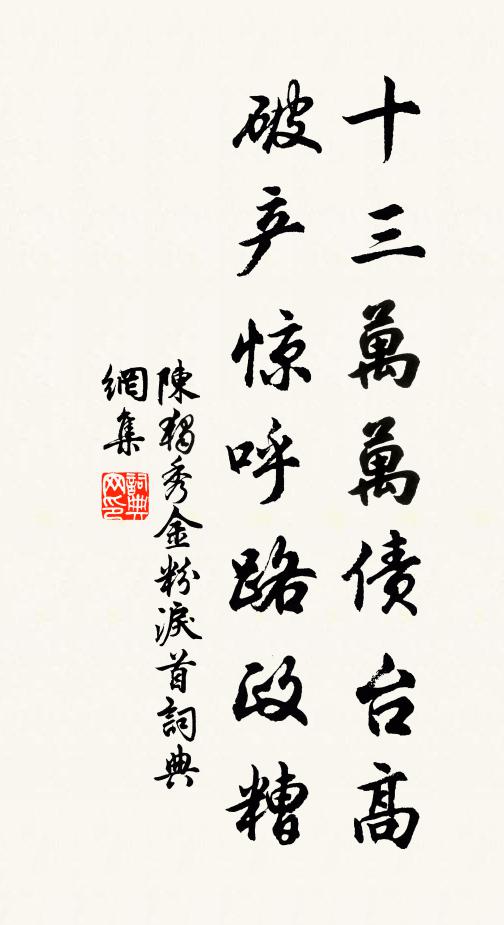 十三萬萬债台高
破产惊呼路政糟
陳獨秀金粉淚首詞典
網集
詞典
网印